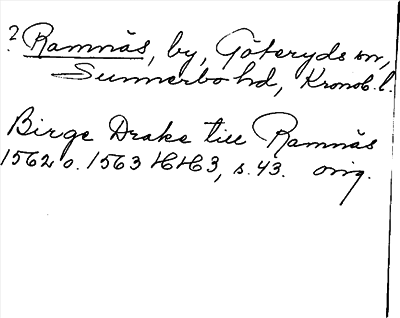 ? Ramnäs, by, Göteryds sn,
Sunnerbo hd, Kronob. l.
Birge Drake till Ramnäs
1562 o. 1563 HH3, s. 43. orig.